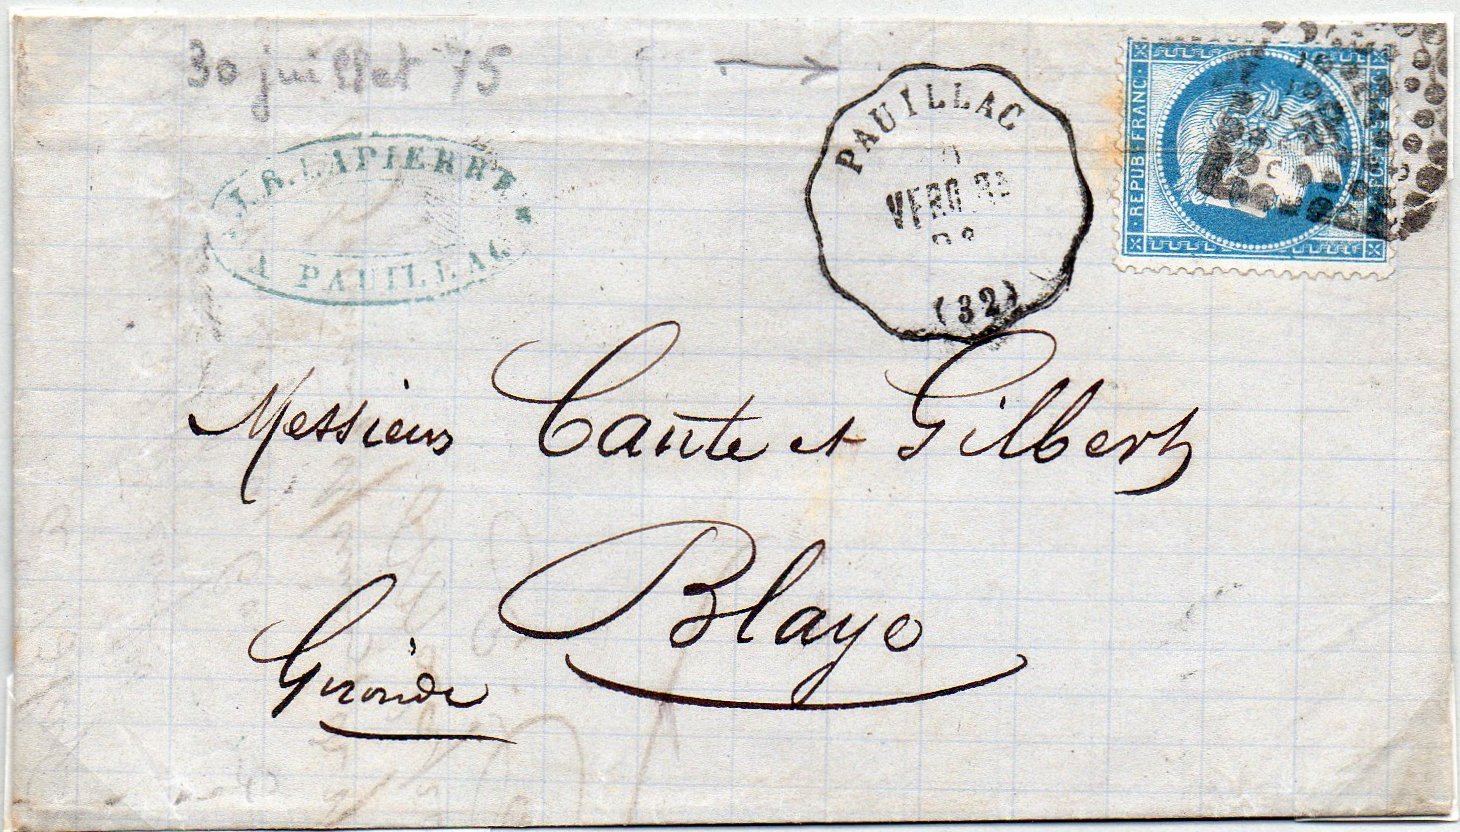 30 juillet 75
J.B. LAPIERRE
A PAUILLAC
PAUILLAC
VERD.
(32)
REPUB. FRANC.
Messieurs Cante et Gilbert
Blaye
Gironde